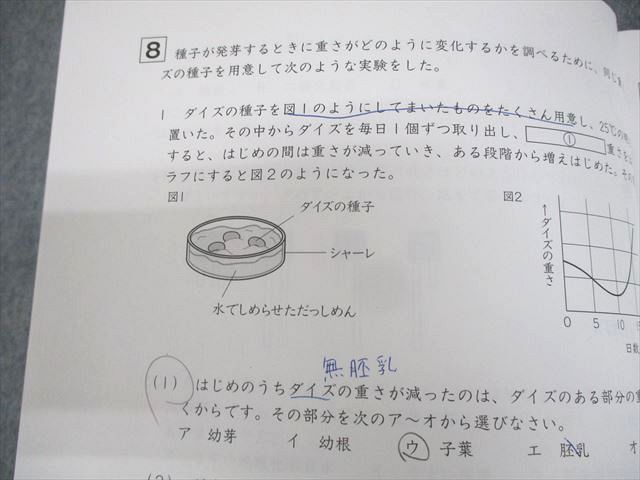 8 種子が発芽するときに重さがどのように変化するかを調べるために、同じ
ズの種子を用意して次のような実験をした。
1 ダイズの種子を図1のようにしてまいたものをたくさん用意し、25℃の
置いた。その中からダイズを毎日1個ずつ取り出し、 ① 重さを
すると、はじめの間は重さが減っていき、ある段階から増えはじめた。その
ラフにすると図2のようになった。
図1
ダイズの種子
シャーレ
水でしめらせただっしめん
図2
↑ダイズの重さ
0 5 10
日数
無胚乳
(1) はじめのうちダイズの重さが減ったのは、ダイズのある部分の重
くからです。その部分を次のア〜オから選びなさい。
ア 幼芽 イ 幼根 ウ 子葉 エ 胚乳 オ